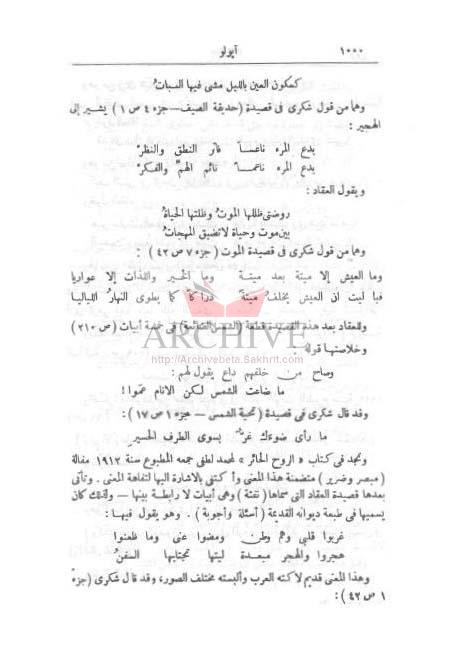 ١٠٠٠
آپولو
كمكون العين بالليل مشى فيها السبات
وهما من قول شكرى فى قصيدة (حديقة الصيف — جزء ٤ ص ١) يشير إلى
الهجير :
يدع المرء ناعساً فاتر النطق والنظر
يدع المرء ناعماً نائم الهم والفكر
ويقول العقاد :
روضتى ظللها الموت وظلتها الحياة
بين موت وحياة لا تضيق المهجات
وهما من قول شكرى فى قصيدة الموت (جزء ٧ ص ٤٢) :
وما العيش إلا ميتة بعد ميتة وما الخير واللذات إلا عواريا
فيا ليت أن العيش يخلف ميتة دراكاً كما يطوى النهار اللياليا
وللعقاد بعد هذه القصيدة قطعة (الشمس الضائعة) فى خمسة أبيات (ص ٢١٠)
وخلاصتها قوله :
ARCHIVE
http://Archivebeta.Sakhrit.com
وصاح من خلفهم داع يقول لهم :
ما ضاعت الشمس لكن الانام عموا !
وقد قال شكرى فى قصيدة (تحية الشمس — جزء ١ ص ١٧) :
ما رأى ضوءك غر يسوى الطرف الحسير
ونجد فى كتاب « الروح الحائر » لمحمد لطفى جمعه المطبوع سنة ١٩١٢ مقالة
(مبصر وضرير) متضمنة هذا المعنى وأكتفى بالاشارة اليها لتفاهة المعنى . وتأتى
بعدها قصيدة العقاد التى سماها (نفثة) وهى أبيات لا رابطة بينها — ولذلك كان
يسميها فى طبعة ديوانه القديمة (أسئلة وأجوبة) . وهو يقول فيها :
غربوا قلبى وهم وطن ومضوا عنى وما ظعنوا
هجروا والهجر مبعدة ليتها تجتابها السفن
وهذا المعنى قديم لاكته العرب وألبسته مختلف الصور، وقد قال شكرى (جزء
١ ص ٤٢) :